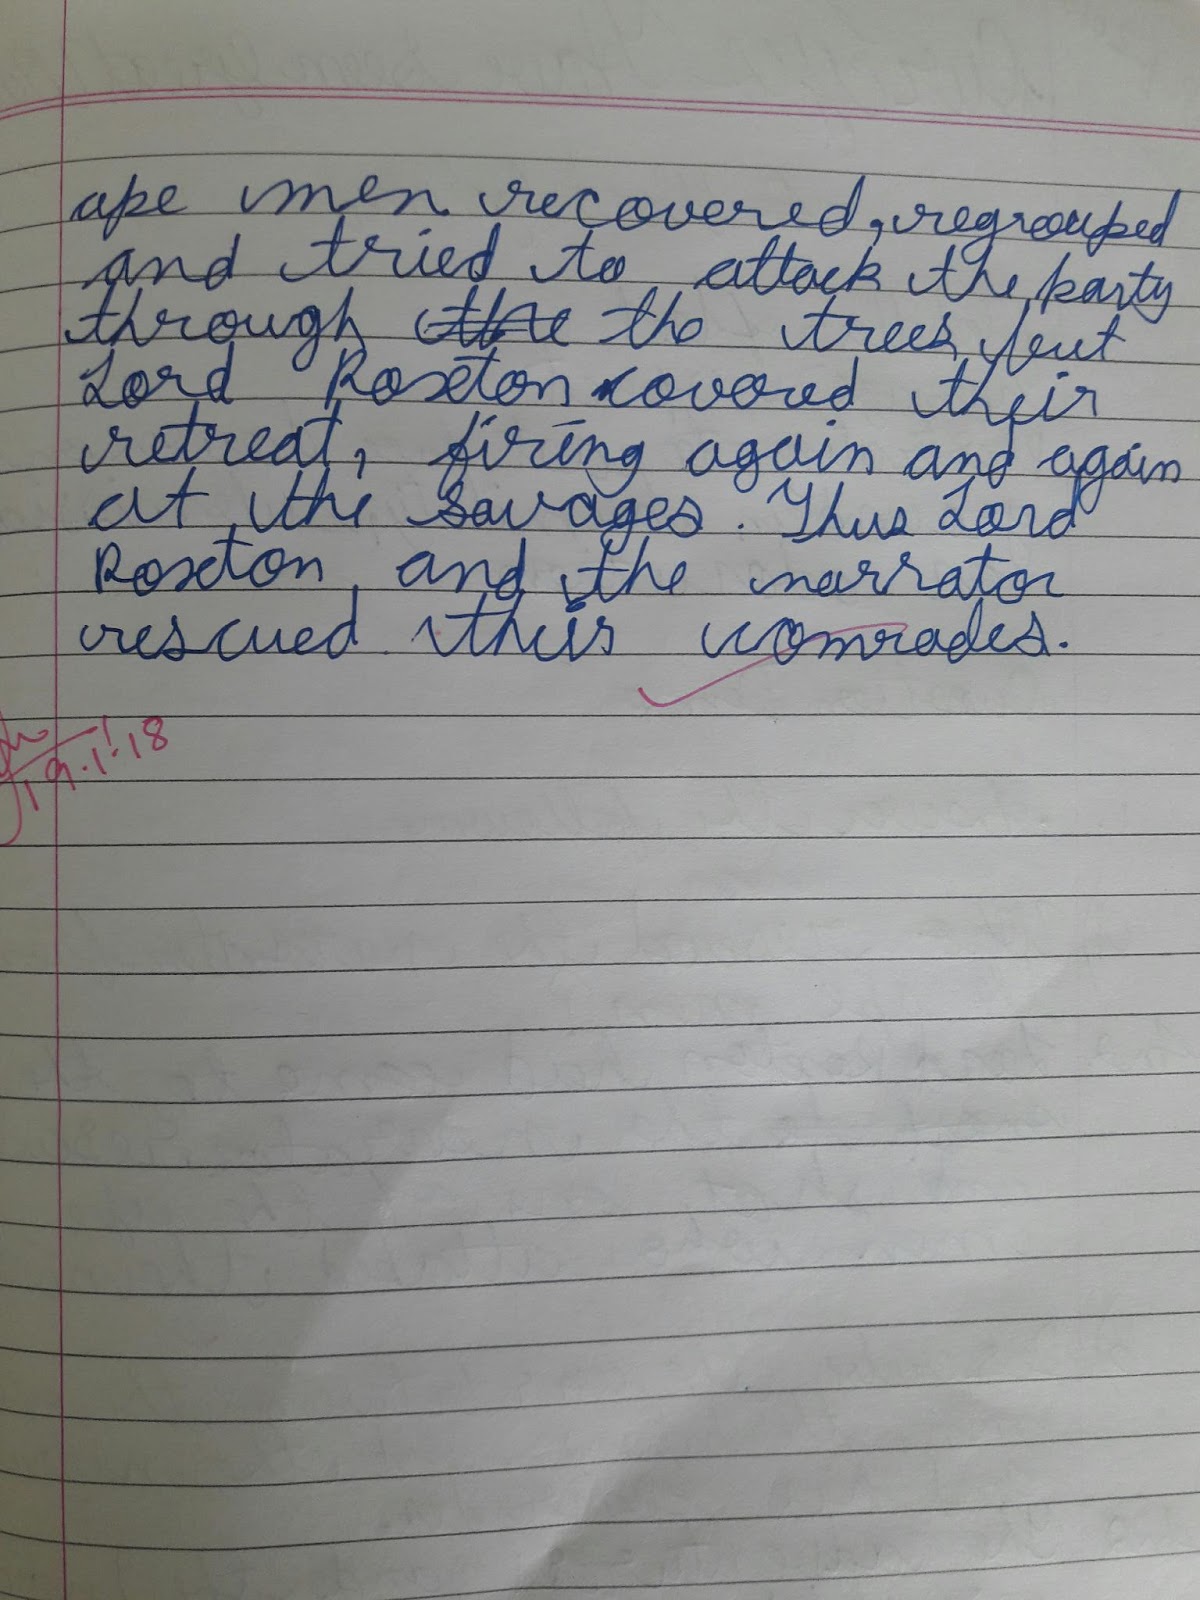 ape men recovered, regrouped
and tried to attack the party
through the the trees, but
Lord Roxton covered their
retreat, firing again and again
at the savages. Thus Lord
Roxton and the narrator
rescued their comrades.
19.1.18